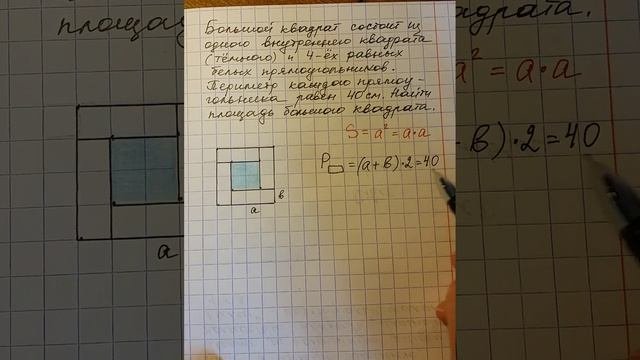 Большой квадрат состоит из
одного внутреннего квадрата
(тёмного) и 4-ёх равных
белых прямоугольников.
Периметр каждого прямоу-
гольника равен 40 см. Найти
площадь большого квадрата.
S = a² = a·a
P▭ = (a+в)·2=40
в
a